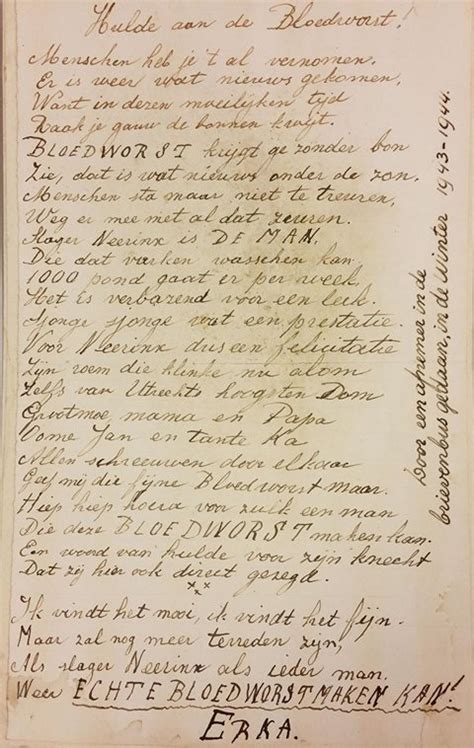 Hulde aan de Bloedworst!
Menschen heb je 't al vernomen.
Er is weer wat nieuws gekomen,
Want in dezen moeilijken tijd
Raak je gauw de bonnen kwijt.
BLOEDWORST krijgt ge zonder bon
Zie, dat is wat nieuws onder de zon.
Menschen sta maar niet te treuren,
Weg er mee met al dat zeuren.
Slager Neerinx is DE MAN,
Die dat varken wasschen kan.
1000 pond gaat er per week,
Het is verbazend voor een leek.
Sjonge sjonge wat een prestatie.
Voor Neerinx dus een felicitatie
Zijn roem die klinke nu alom
Zelfs van Utrechts hoogsten Dom
Grootmoe, mama en Papa
Oome Jan en tante Ka
Allen schreeuwen door elkaar
Geef mij die fijne Bloedworst maar.
Hiep hiep hoera voor zulk een man
Die deze BLOEDWORST maken kan.
Een woord van hulde voor zijn knecht
Dat zij hier ook direct gezegd.
xxx
Ik vindt het mooi, ik vindt het fijn.
Maar zal nog meer terreden zijn,
Als slager Neerinx als ieder man.
Weer ECHTE BLOEDWORST MAKEN KAN!
ERKA.
Door een afnemer in de
brievenbus gedaan, in de Winter 1943-1944.